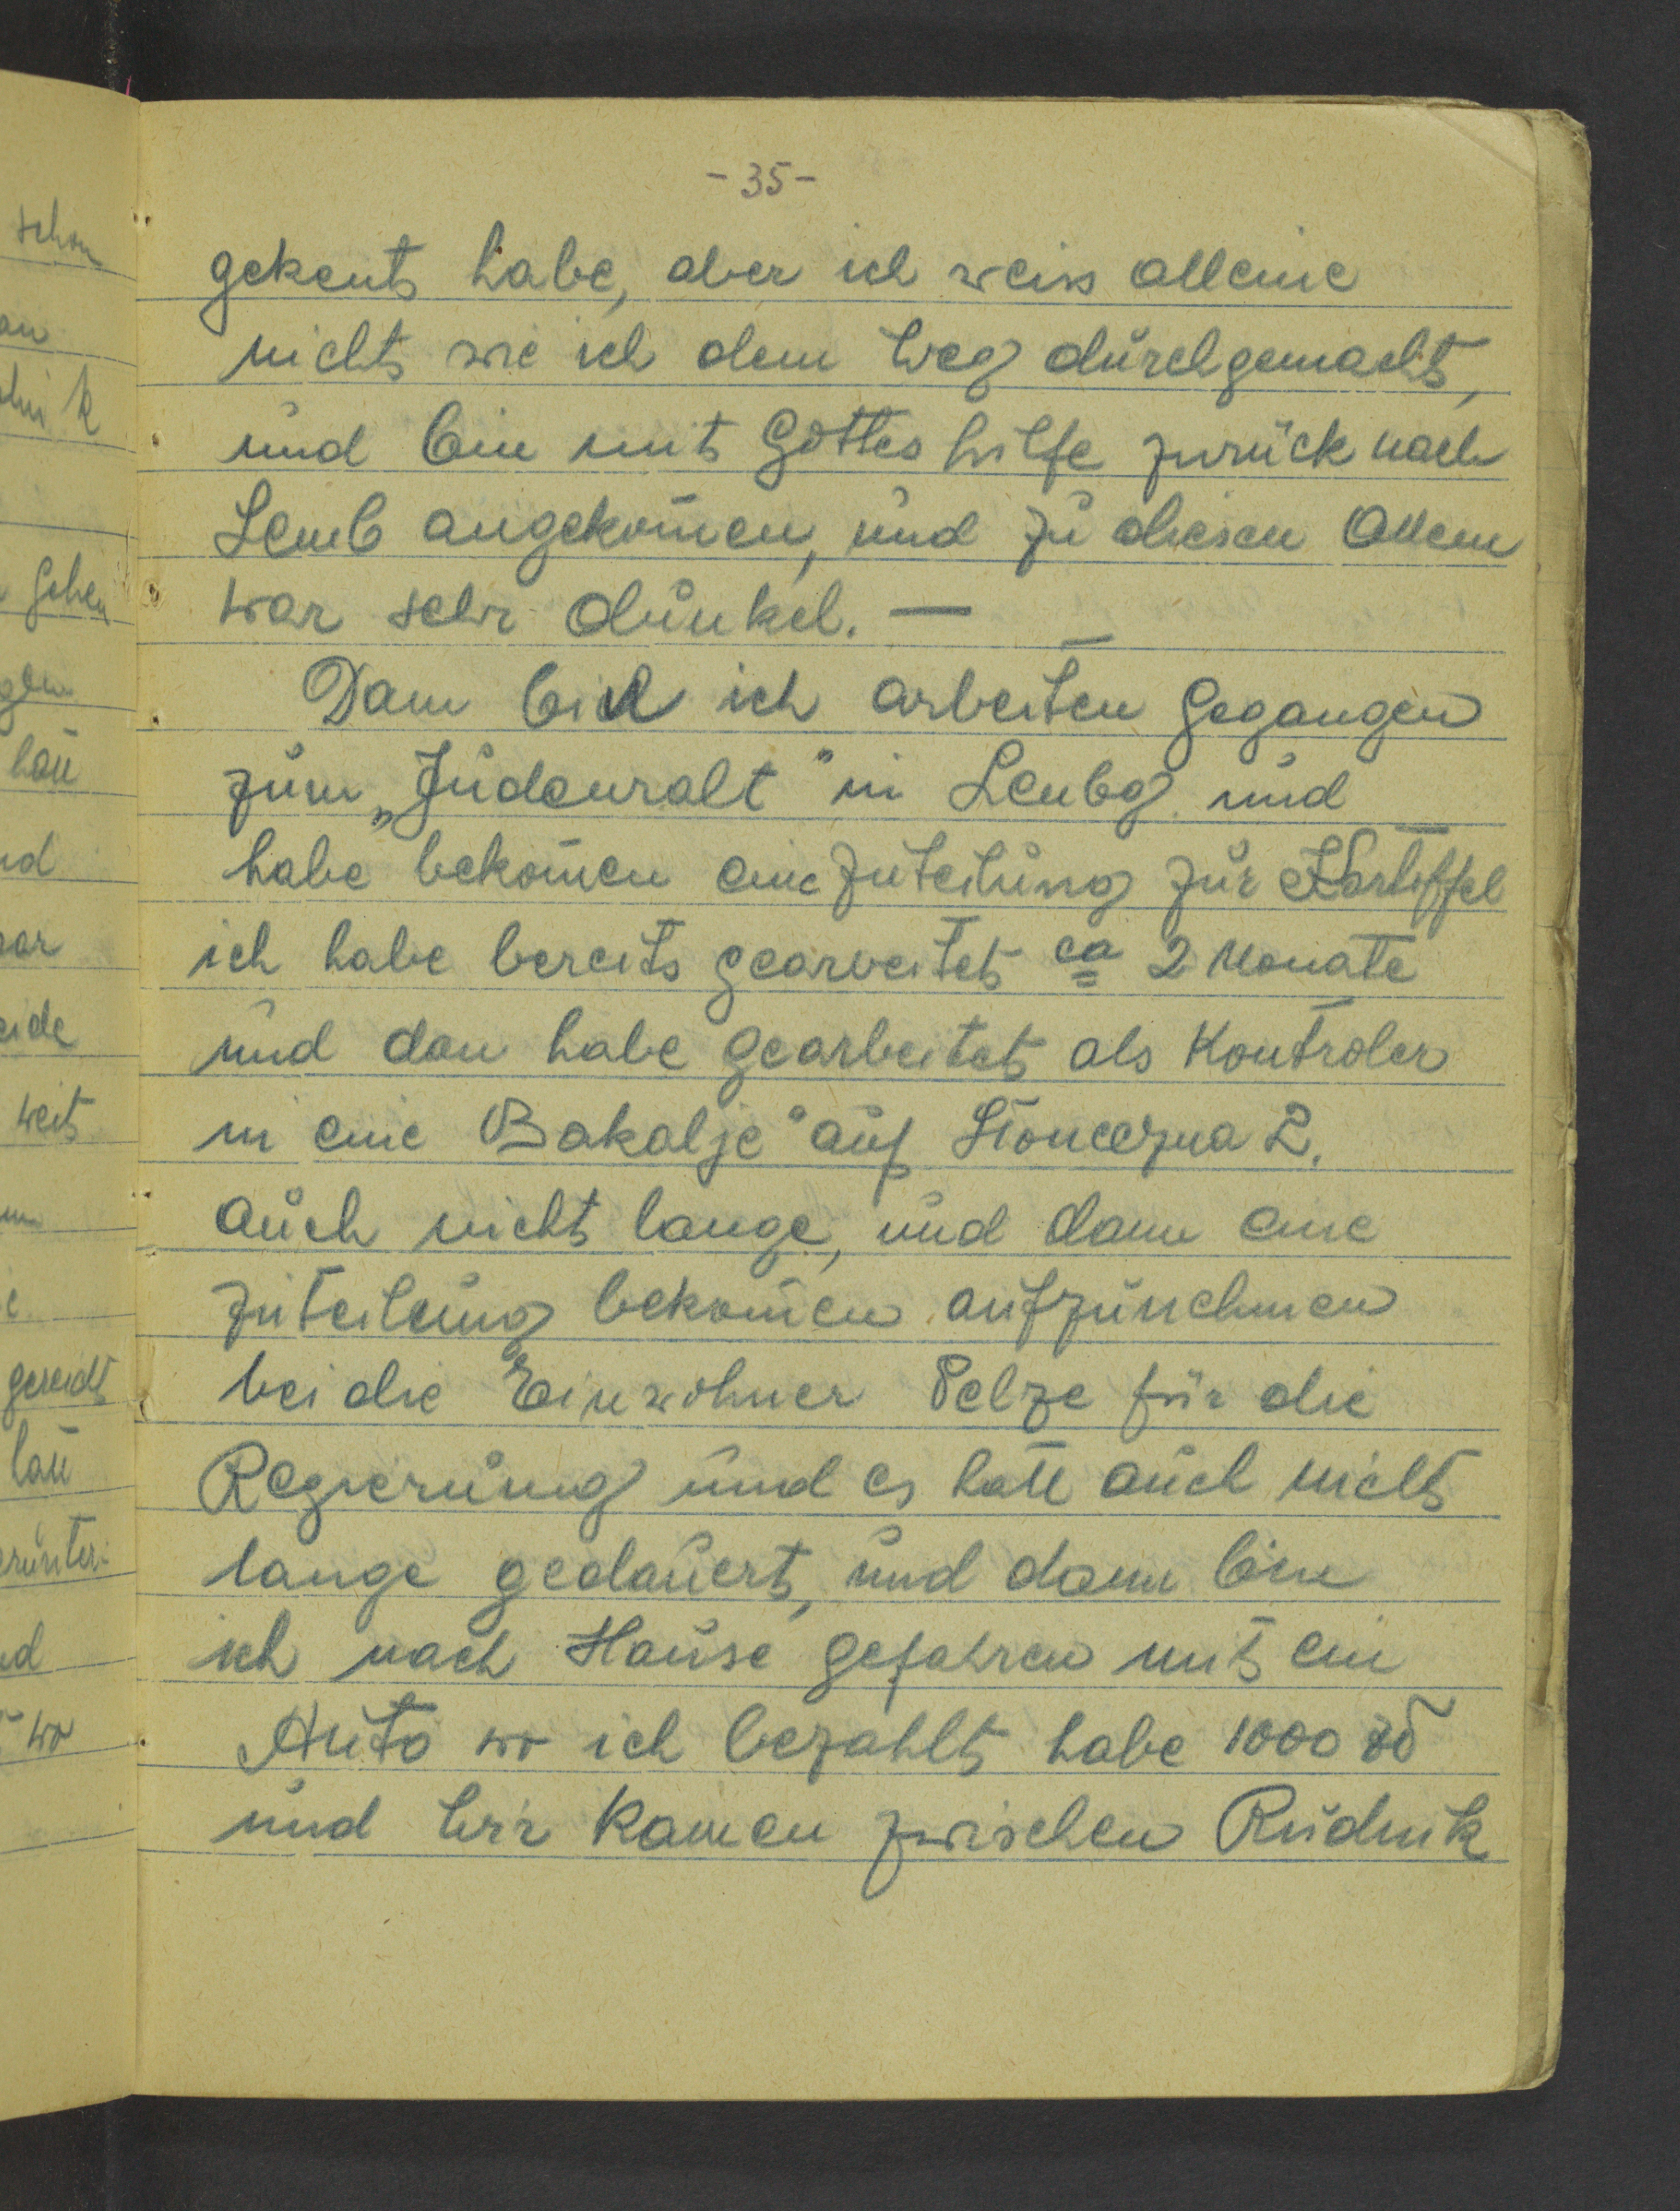 - 35 -
gekent habe, aber ich weiss alleine
nicht wie ich dem Weg durchgemacht,
und bin mit Gottes hilfe zurück nach
Lemb angekom̄en, und zu diesen Allem
war sehr dunkel. —
Dann bin ich arbeiten gegangen
zum „Judenralt" in Lembg. und
habe bekom̄en eine zuteilung zur Kartoffel
ich habe bereits gearbeitet ca 2 Monate
und dan habe gearbeitet als Kontroler
in eine Bakalje" auf Słoneczna 2.
auch nicht lange, und dann eine
zuteilung bekom̄en aufzunehmen
bei die Einwohner Pelze für die
Regierung und es hatt auch nicht
lange gedauert, und dann bin
ich nach Hause gefahren mit ein
Auto wo ich bezahlt habe 1000 zł
und wir kamen zwischen Rudnik
schon
gehen
weit
wo